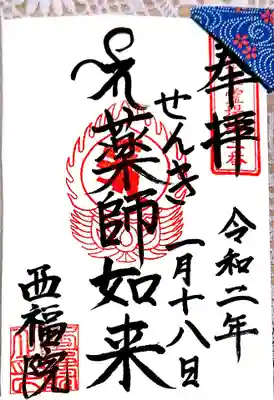 奉拝
令和二年
一月十八日
せんき
薬師如来
西福院